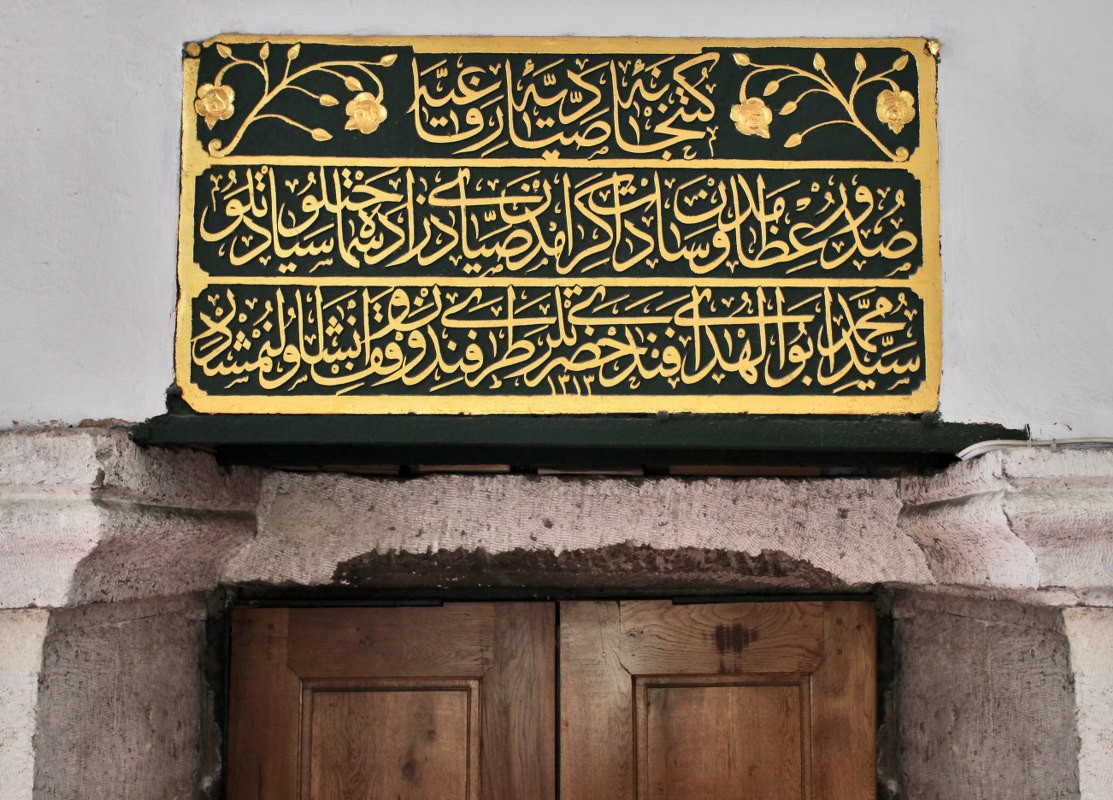 كتبخانهٔ صيّاديهٔ رفاعيّه
صدور عظامدن و سادات كرامدن صيّادی زاده سماحتلو سيادتلو
سيّد محمّد ابو الهدی افندی حضرتلری طرفندن وقف و انشا اولنمشدر
١٣١٣